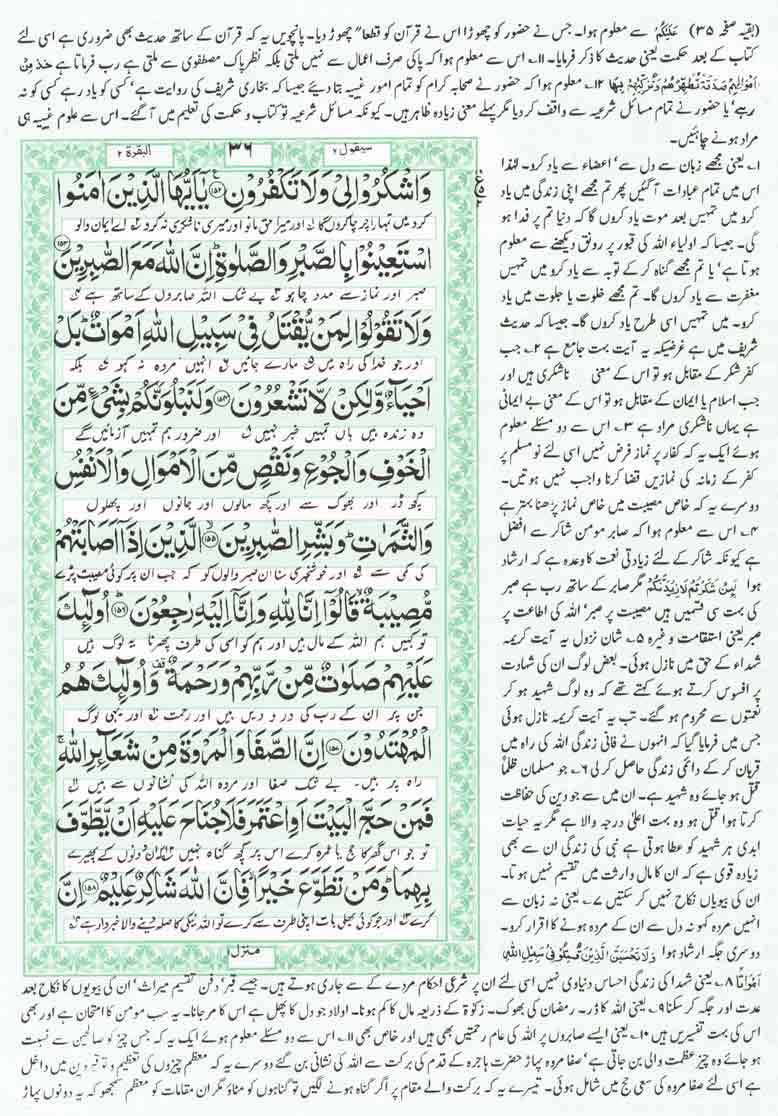 (بقیہ صفحہ ۳۵) عَلَيْكُمْ سے معلوم ہوا۔ جس نے حضور کو چھوڑا اس نے قرآن کو قطعا" چھوڑ دیا۔ پانچویں یہ کہ قرآن کے ساتھ حدیث بھی ضروری ہے اسی لئے
کتاب کے بعد حکمت یعنی حدیث کا ذکر فرمایا۔ ۱۱۔ اس سے معلوم ہوا کہ پاکی صرف اعمال سے نہیں ملتی بلکہ نظر پاک مصطفوی سے ملتی ہے رب فرماتا ہے خُذْ مِنْ
اَمْوَالِهِمْ صَدَقَةً تُطَهِّرُهُمْ وَتُزَكِّيهِمْ بِهَا ۱۲۔ معلوم ہوا کہ حضور نے صحابہ کرام کو تمام امور غیبیہ بتا دیئے جیسا کہ بخاری شریف کی روایت ہے' کسی کو یاد رہے کسی کو نہ
رہے' یا حضور نے تمام مسائل شرعیہ سے واقف کر دیا مگر پہلے معنی زیادہ ظاہر ہیں۔ کیونکہ مسائل شرعیہ تو کتاب و حکمت کی تعلیم میں آ گئے۔ اس سے علوم غیبیہ ہی
مراد ہونے چاہئیں۔
سیقول ۲
۳۶
البقرة ۲
وَاشْكُرُوْا لِیْ وَلَا تَكْفُرُوْنِ ۝۱۵۲ یٰۤاَیُّهَا الَّذِیْنَ اٰمَنُوا
کرو میں تمہارا چرچا کروں گا اور میرا حق مانو اور میری ناشکری نہ کرو اے ایمان والو
اسْتَعِیْنُوْا بِالصَّبْرِ وَالصَّلٰوةِ ؕ اِنَّ اللّٰهَ مَعَ الصّٰبِرِیْنَ ۝۱۵۳
صبر اور نماز سے مدد چاہو بے شک اللہ صابروں کے ساتھ ہے
وَلَا تَقُوْلُوْا لِمَنْ یُّقْتَلُ فِیْ سَبِیْلِ اللّٰهِ اَمْوَاتٌ ؕ بَلْ
اور جو خدا کی راہ میں مارے جائیں انہیں مردہ نہ کہو بلکہ
اَحْیَآءٌ وَّلٰكِنْ لَّا تَشْعُرُوْنَ ۝۱۵۴ وَلَنَبْلُوَنَّكُمْ بِشَیْءٍ مِّنَ
وہ زندہ ہیں ہاں تمہیں خبر نہیں اور ضرور ہم تمہیں آزمائیں گے
الْخَوْفِ وَالْجُوْعِ وَنَقْصٍ مِّنَ الْاَمْوَالِ وَالْاَنْفُسِ
کچھ ڈر اور بھوک سے اور کچھ مالوں اور جانوں اور پھلوں
وَالثَّمَرٰتِ ؕ وَبَشِّرِ الصّٰبِرِیْنَ ۝۱۵۵ الَّذِیْنَ اِذَاۤ اَصَابَتْهُمْ
کی کمی سے اور خوشخبری سنا ان صبر والوں کو کہ جب ان پر کوئی مصیبت پڑے
مُّصِیْبَةٌ ۙ قَالُوْۤا اِنَّا لِلّٰهِ وَاِنَّاۤ اِلَیْهِ رٰجِعُوْنَ ؕ۝۱۵۶ اُولٰٓئِكَ
تو کہیں ہم اللہ کے مال ہیں اور ہم کو اسی کی طرف پھرنا یہ لوگ ہیں
عَلَیْهِمْ صَلَوٰتٌ مِّنْ رَّبِّهِمْ وَرَحْمَةٌ ۫ وَاُولٰٓئِكَ هُمُ
جن پر ان کے رب کی درودیں ہیں اور رحمت اور یہی لوگ
الْمُهْتَدُوْنَ ۝۱۵۷ اِنَّ الصَّفَا وَالْمَرْوَةَ مِنْ شَعَآىِٕرِ اللّٰهِ ۚ
راہ پر ہیں۔ بے شک صفا اور مروہ اللہ کی نشانیوں سے ہیں
فَمَنْ حَجَّ الْبَیْتَ اَوِ اعْتَمَرَ فَلَا جُنَاحَ عَلَیْهِ اَنْ یَّطَّوَّفَ
تو جو اس گھر کا حج یا عمرہ کرے اس پر کچھ گناہ نہیں کہ ان دونوں کے پھیرے
بِهِمَا ؕ وَمَنْ تَطَوَّعَ خَیْرًا ۙ فَاِنَّ اللّٰهَ شَاكِرٌ عَلِیْمٌ ۝۱۵۸ اِنَّ
کرے اور جو کوئی بھلی بات اپنی طرف سے کرے تو اللہ نیکی کا صلہ دینے والا خبردار ہے
منزل ۱
۱۔ یعنی مجھے زبان سے دل سے' اعضاء سے یاد کرو۔ لہٰذا
اس میں تمام عبادات آ گئیں پھر تم مجھے اپنی زندگی میں یاد
کرو میں تمہیں بعد موت یاد کروں گا کہ دنیا تم پر فدا ہو
گی۔ جیسا کہ اولیاء اللہ کی قبور پر رونق دیکھنے سے معلوم
ہوتا ہے' یا تم مجھے گناہ کر کے توبہ سے یاد کرو میں تمہیں
مغفرت سے یاد کروں گا۔ تم مجھے خلوت یا جلوت میں یاد
کرو۔ میں تمہیں اسی طرح یاد کروں گا۔ جیسا کہ حدیث
شریف میں ہے غرضیکہ یہ آیت بہت جامع ہے ۲۔ جب
کفر شکر کے مقابل ہو تو اس کے معنی ناشکری ہیں اور
جب اسلام یا ایمان کے مقابل ہو تو اس کے معنی بے ایمانی
ہے یہاں ناشکری مراد ہے ۳۔ اس سے دو مسئلے معلوم
ہوئے ایک یہ کہ کفار پر نماز فرض نہیں اسی لئے نو مسلم پر
کفر کے زمانہ کی نمازیں قضا کرنا واجب نہیں ہوتیں۔
دوسرے یہ کہ خاص مصیبت میں خاص نماز پڑھنا بہتر ہے
۴۔ اس سے معلوم ہوا کہ صابر مومن شاکر سے افضل
ہے کیونکہ شاکر کے لئے زیادتی نعمت کا وعدہ ہے کہ ارشاد
ہوا لَئِنْ شَكَرْتُمْ لَاَزِيْدَنَّكُمْ مگر صابر کے ساتھ رب ہے صبر
کی بہت سی قسمیں ہیں مصیبت پر صبر' اللہ کی اطاعت پر
صبر یعنی استقامت وغیرہ ۵۔ شان نزول یہ آیت کریمہ
شہداء کے حق میں نازل ہوئی۔ بعض لوگ ان کی شہادت
پر افسوس کرتے ہوئے کہتے تھے کہ وہ لوگ شہید ہو کر
نعمتوں سے محروم ہو گئے۔ تب یہ آیت کریمہ نازل ہوئی
جس میں فرمایا گیا کہ انہوں نے فانی زندگی اللہ کی راہ میں
قربان کر کے دائمی زندگی حاصل کر لی ۶۔ جو مسلمان ظلماً
قتل ہو جائے وہ شہید ہے۔ ان میں سے جو دین کی حفاظت
کرتا ہوا قتل ہو وہ بہت اعلیٰ درجہ والا ہے مگر یہ حیات
ابدی ہر شہید کو عطا ہوتی ہے نبی کی زندگی ان سے بھی
زیادہ قوی ہے کہ ان کا مال وراثت میں تقسیم نہیں ہوتا۔
ان کی بیویاں نکاح نہیں کر سکتیں ۷۔ یعنی نہ زبان سے
انہیں مردہ کہو نہ دل سے ان کے مردہ ہونے کا اقرار کرو۔
دوسری جگہ ارشاد ہوا وَلَا تَحْسَبَنَّ الَّذِيْنَ قُتِلُوْا فِيْ سَبِيْلِ اللّٰهِ
اَمْوَاتًا ۸۔ یعنی شہدا کی زندگی احساس دنیاوی نہیں اسی لئے ان پر شرعی احکام مردے کے سے جاری ہوتے ہیں۔ جیسے قبر' دفن تقسیم میراث' ان کی بیویوں کا نکاح بعد
عدت اور جگہ کر سکنا ۹۔ یعنی اللہ کا ڈر۔ رمضان کی بھوک۔ زکوٰۃ کے ذریعہ مال کا کم ہونا۔ اولاد جو دل کا پھل ہے اس کا مر جانا۔ یہ سب مومن کا امتحان ہے اور بھی
اس کی بہت تفسیریں ہیں ۱۰۔ یعنی ایسے صابروں پر اللہ کی عام رحمتیں بھی ہیں اور خاص بھی ۱۱۔ اس سے دو مسئلے معلوم ہوئے ایک یہ کہ جس چیز کو صالحین سے نسبت
ہو جائے وہ چیز عظمت والی بن جاتی ہے' صفا مروہ پہاڑ حضرت ہاجرہ کے قدم کی برکت سے اللہ کی نشانی بن گئے دوسرے یہ کہ معظم چیزوں کی تعظیم و توقیر دین میں داخل
ہے اسی لئے صفا مروہ کی سعی حج میں شامل ہوئی۔ تیسرے یہ کہ برکت والے مقام پر اگر گناہ ہونے لگیں تو گناہوں کو مٹاؤ مگر ان مقامات کو معظم سمجھو کہ یہ دونوں پہاڑ